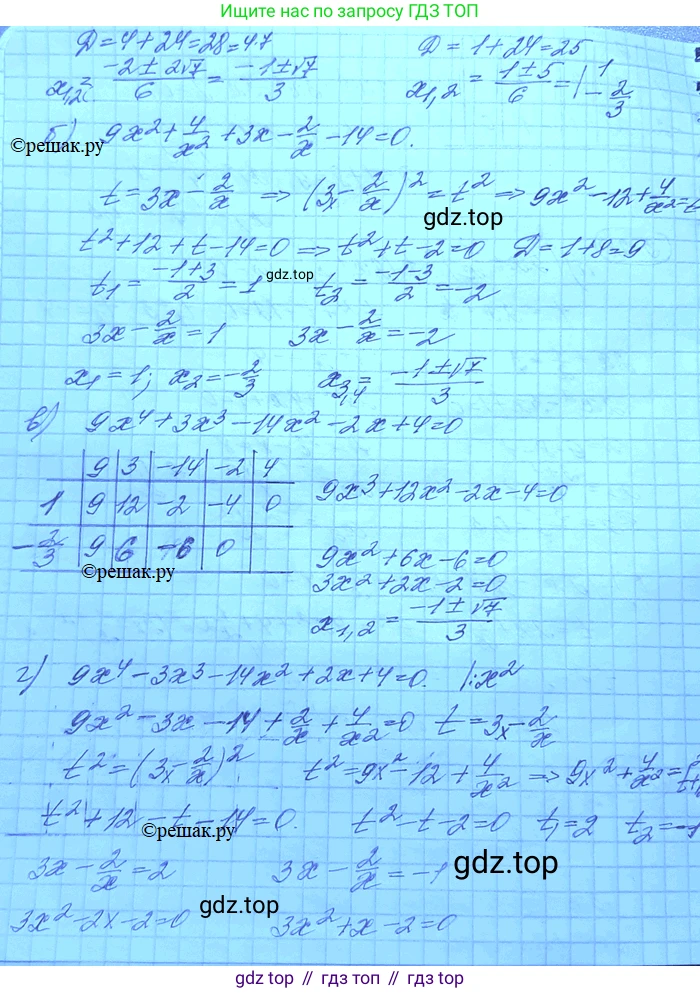 Решак.ру по запросу ГДЗ ТОП
D=4+24=28=4·7 D=1+24=25
x₁,₂= (-2±2√7)/6 = (-1±√7)/3 x₁,₂ = (1±5)/6 = | 1 -2/3
б) 9x²+4/x²+3x-2/x-14=0.
©решак.ру
t=3x-2/x ⇒ (3x-2/x)²=t² ⇒ 9x²-12+4/x²=t
gdz.top
t²+12+t-14=0 ⇒ t²+t-2=0 D=1+8=9
t₁=(-1+3)/2=1 gdz.top t₂=(-1-3)/2=-2
3x-2/x=1 3x-2/x=-2
x₁=1; x₂=-2/3 x₃,₄=(-1±√7)/3
в) 9x⁴+3x³-14x²-2x+4=0
9 3 -14 -2 4
1 9 12 -2 -4 0 9x³+12x²-2x-4=0
-2/3 9 6 -6 0 9x²+6x-6=0
©решак.ру 3x²+2x-2=0
x₁,₂=(-1±√7)/3
г) 9x⁴-3x³-14x²+2x+4=0. |:x²
9x²-3x-14+2/x+4/x²=0 t=3x-2/x
t²=(3x-2/x)² t²=9x²-12+4/x² ⇒ 9x²+4/x²=
t²+12-t-14=0. t²-t-2=0 t₁=2 t₂=-1
©решак.ру
3x-2/x=2 3x-2/x=-1
gdz.top
3x²-2x-2=0 gdz.top 3x²+x-2=0
gdz top // гдз топ // gdz.top